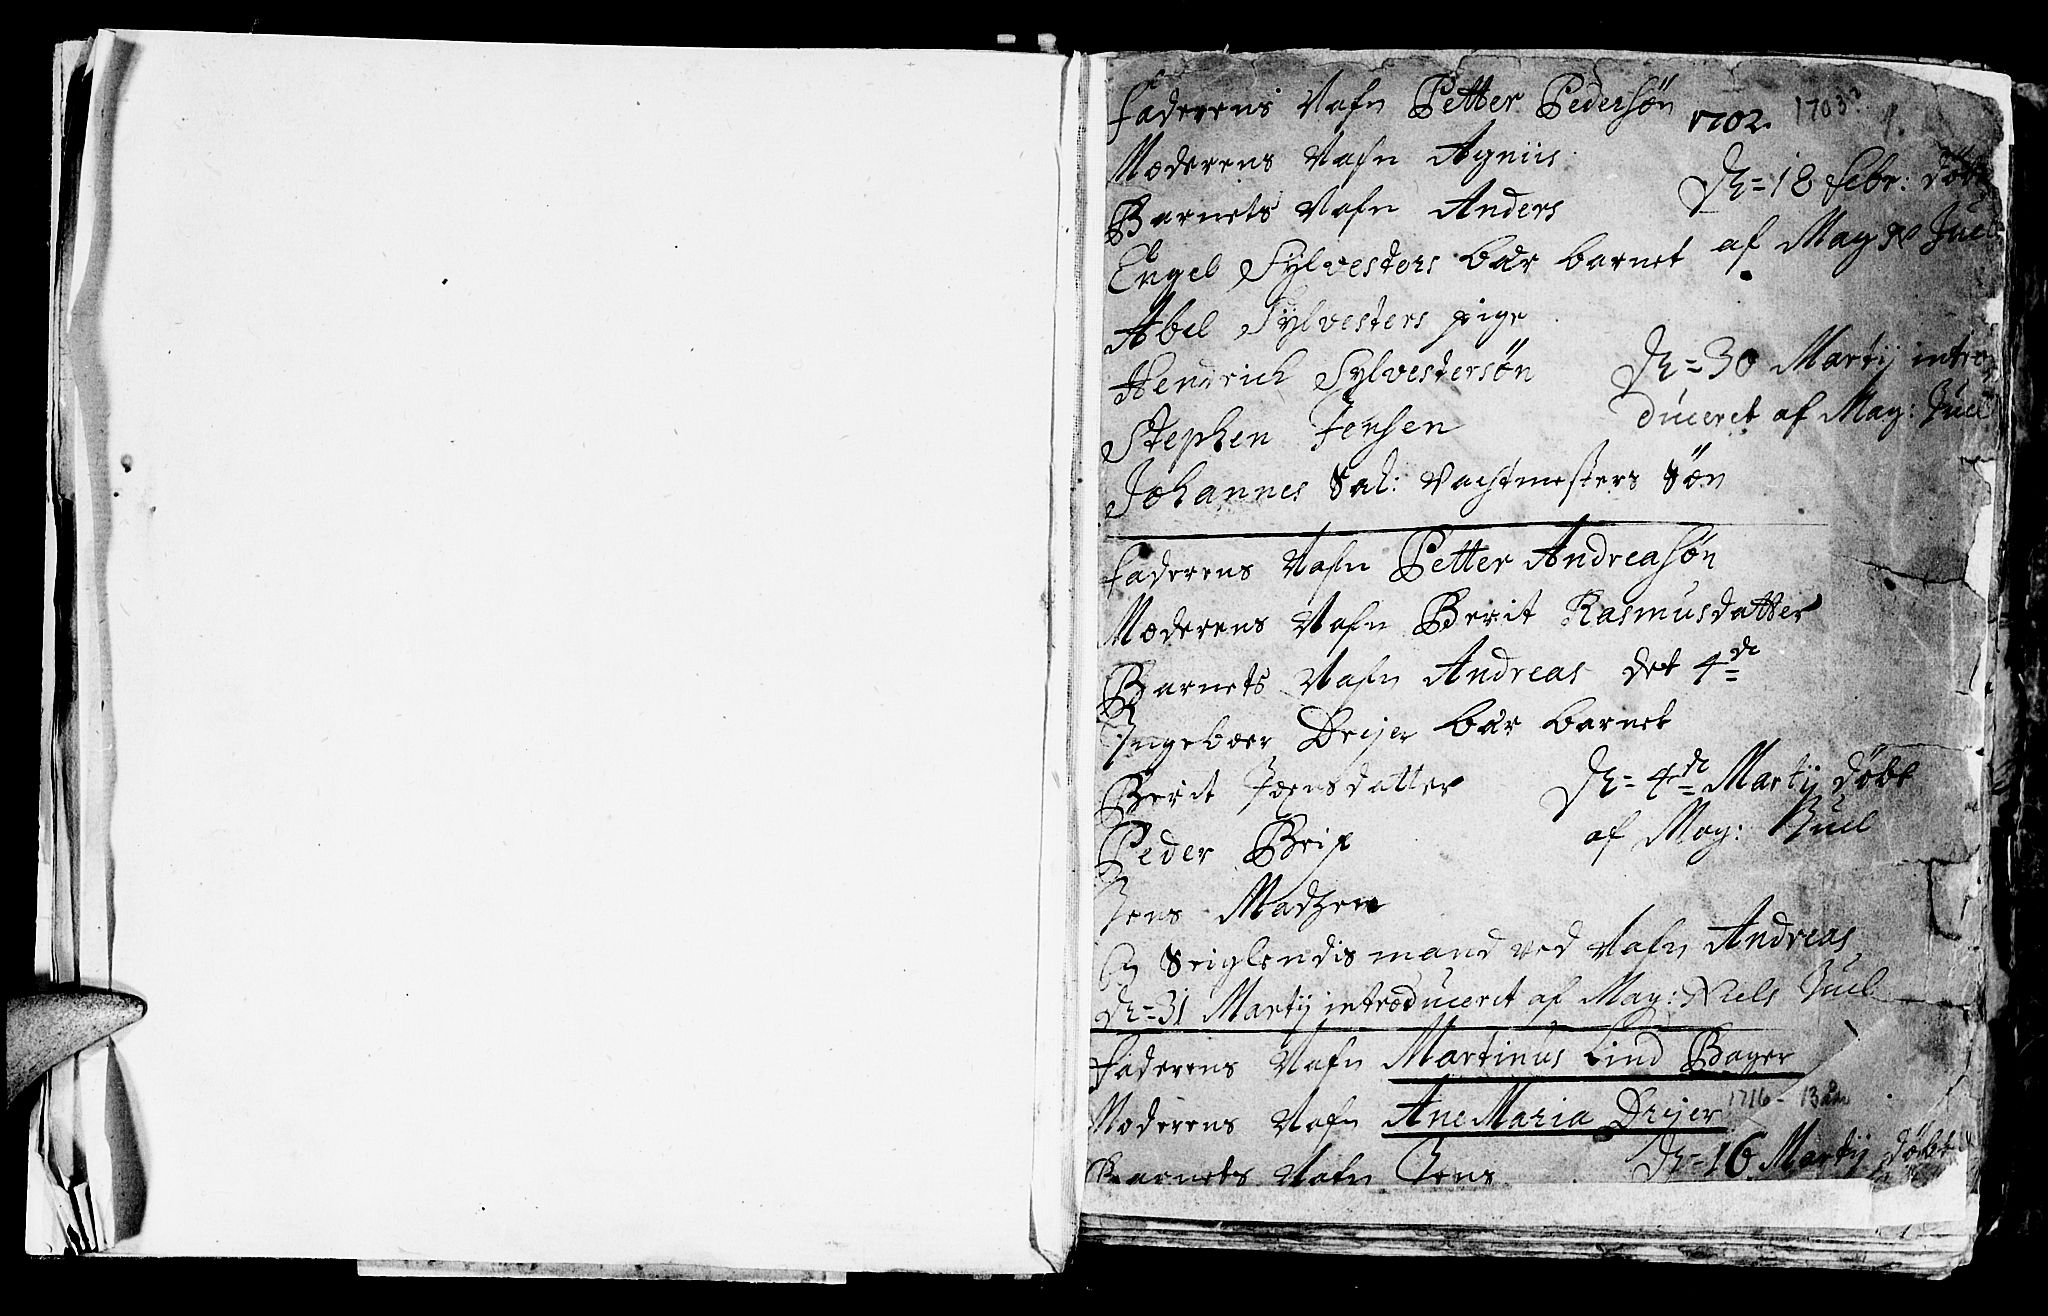 Faderens Nafn Petter Pedersøn
1702. 1703?
Moderens Nafn Agniis
Barnets Nafn Anders
Dn=18 Febr: døbt
Engel Sylvesters bar barnet
af Mag N Juel
Abel Sylvesters pige
Hendrich Sylvestersøn
Dn=30 Martij intro
Stephen Jensen
duceret af Mag: Juel
Johannes Sal: Vachtmesters Søn
Faderens Nafn Petter Andreasøn
Moderens Nafn Berit Rasmusdatter
Barnets Nafn Andreas det 4de
Ingeboer Dreyer bar barnet
Berit Joensdatter
Dn=4de Martij døbt
Peder Brix
af Mag: Juel
Jens Madzen
mand ved Nafn Andreas
Dn=31 Martij introduceret af Mag: Niels Juel
Faderens Nafn Martinus Lind Bager
Moderens Nafn Ane Maria Dreyer
1716 - 13 år
Barnets Nafn Jens
Dn=16 Martij døbt